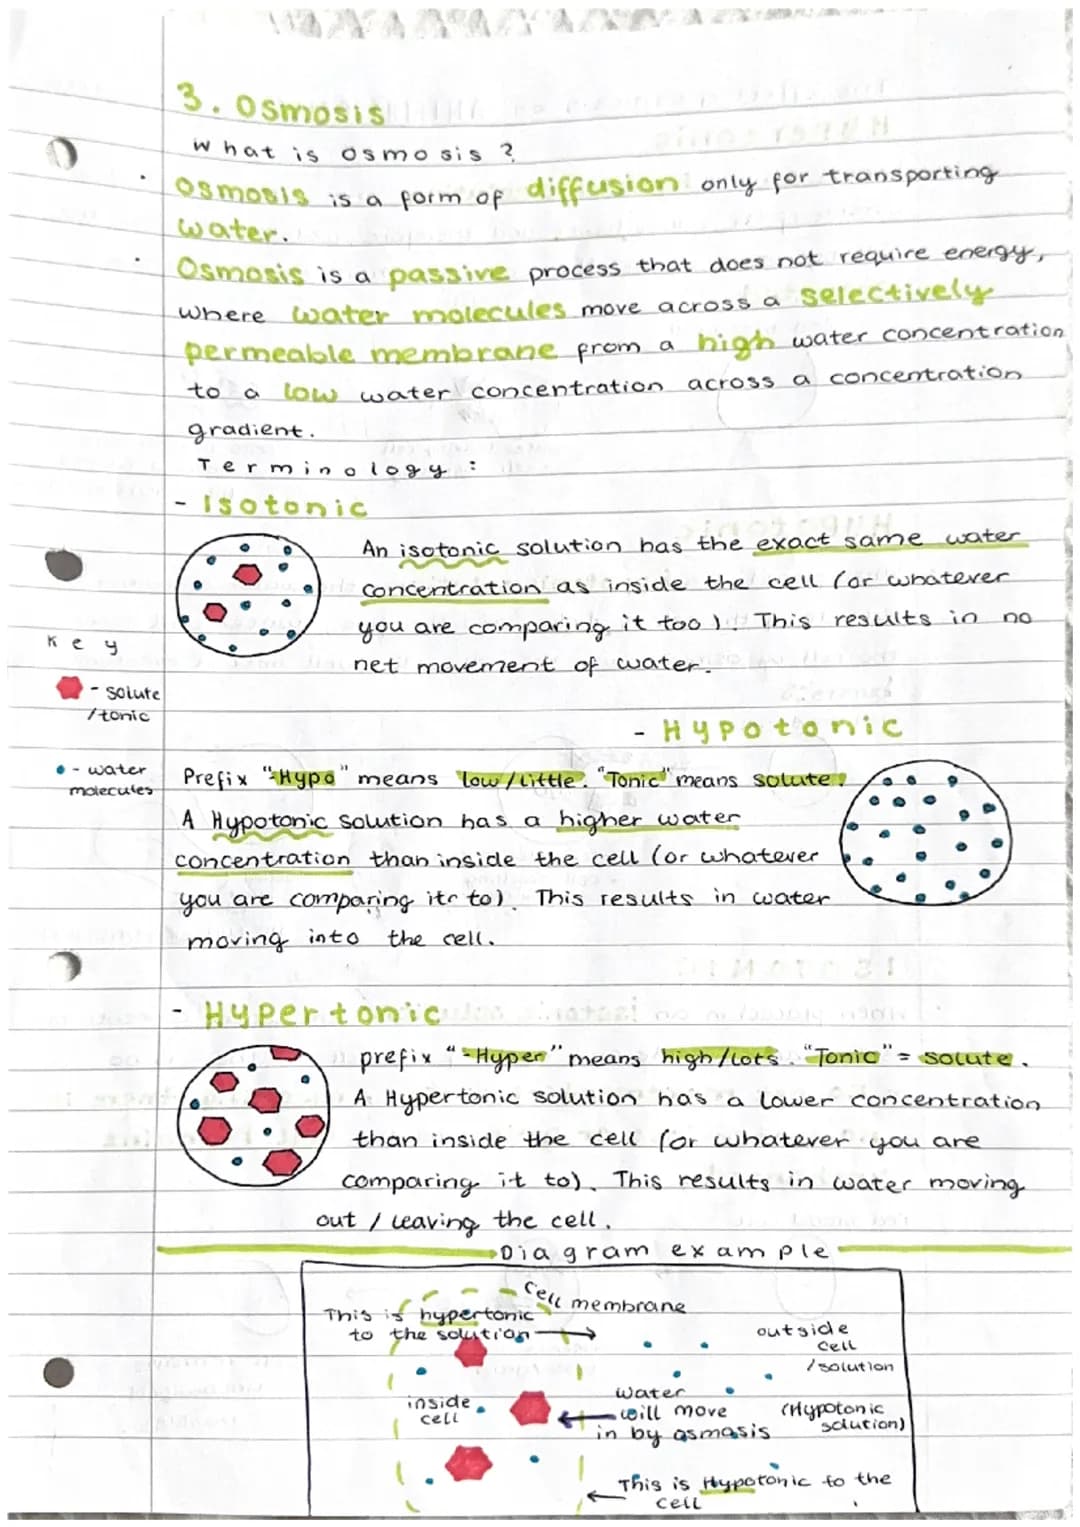 3. Osmosis
What is osmosis ?
• Osmosis is a form of diffusion only for transporting
water.
• Osmosis is a passive process that does not require energy,
where water molecules move across a selectively
permeable membrane from a high water concentration
to a low water concentration across a concentration
gradient.
Terminology :
- Isotonic
An isotonic solution has the exact same water
concentration as inside the cell (or whatever
you are comparing it too). This results in no
net movement of water.
Key
- solute
/tonic
- water
molecules
- Hypotonic
Prefix "-Hypo" means low/little. "Tonic" means solute.
A Hypotonic solution has a higher water
concentration than inside the cell (or whatever
you are comparing it to). This results in water
moving into the cell.
- Hypertonic
prefix "-Hyper" means high/lots. "Tonic" = solute.
A Hypertonic solution has a lower concentration
than inside the cell (or whatever you are
comparing it to). This results in water moving
out / leaving the cell.
Diagram example
Cell membrane
This is hypertonic
to the solution
outside
cell
/solution
inside
cell
water
will move
in by osmosis
(Hypotonic
solution)
This is Hypotonic to the
cell